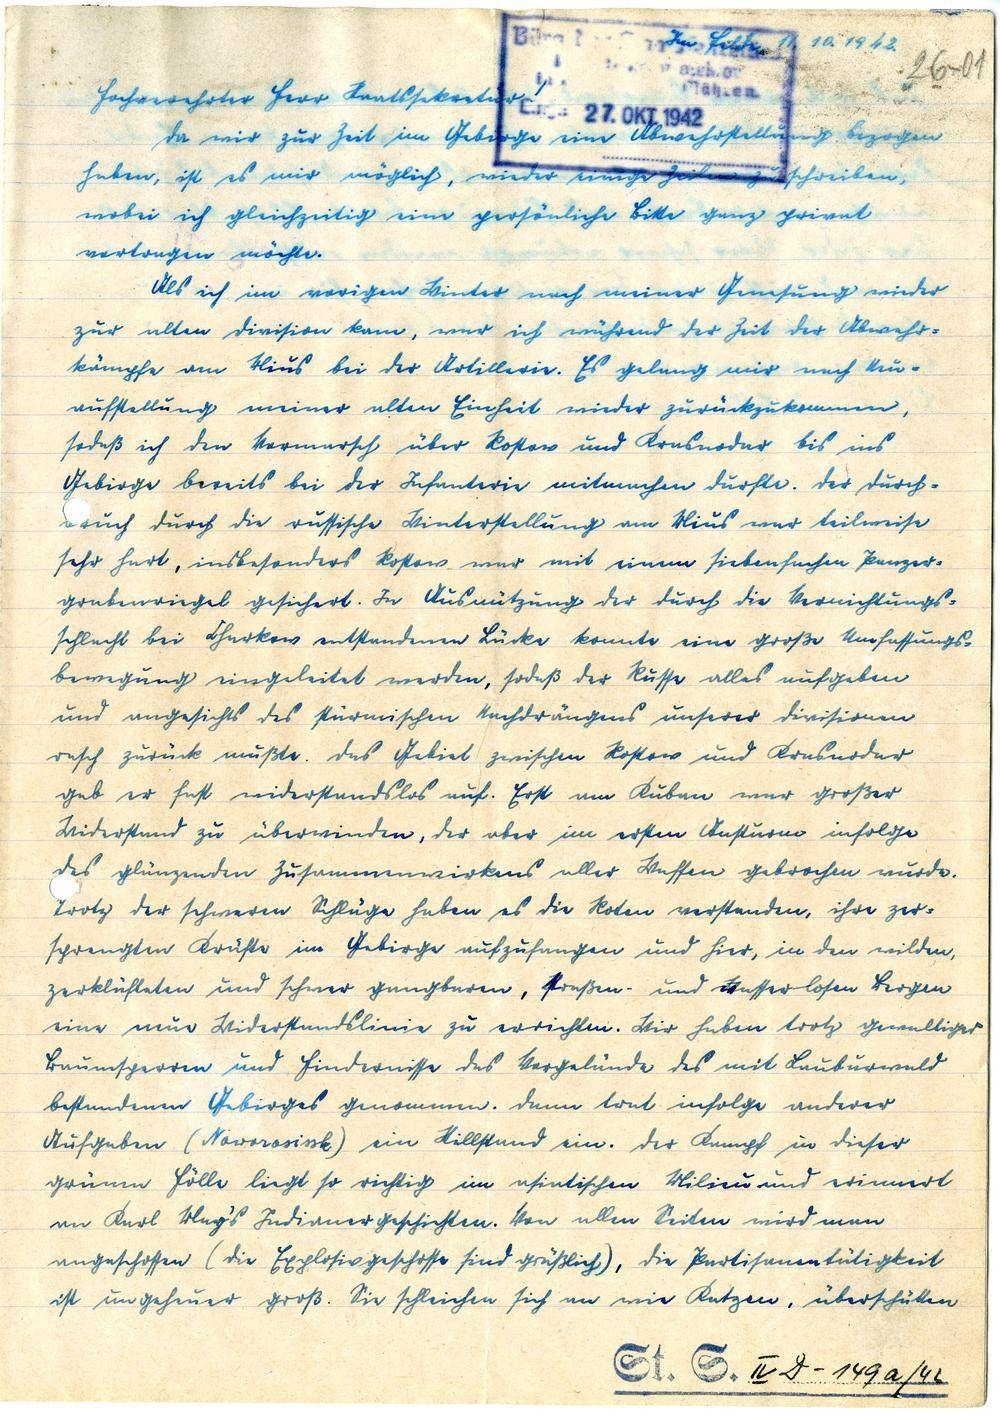 Im Felde, 11.10.1942
26-01
Büro des Staatssekretärs
Mähren
Eing. 27. OKT 1942
Hochverehrter Herr Staatssekretär!
da wir zur Zeit im Gebirge eine Abwehrstellung bezogen
haben, ist es mir möglich, wieder einige Zeilen zu schreiben,
wobei ich gleichzeitig eine persönliche Bitte ganz privat
vortragen möchte.
Als ich im vorigen Winter nach meiner Genesung wieder
zur alten Division kam, war ich während der Zeit der Abwehr-
kämpfe am Mius bei der Artillerie. Es gelang mir nach Neu-
aufstellung meiner alten Einheit wieder zurückzukommen,
sodaß ich den Vormarsch über Rostow und Krasnodar bis ins
Gebirge bereits bei der Infanterie mitmachen durfte. Der Durch-
bruch durch die russische Winterstellung am Mius war teilweise
sehr hart, insbesonders Rostow war mit einem siebenfachen Panzer-
grabenriegel gesichert. In Ausnützung der durch die Vernichtungs-
schlacht bei Charkow entstandenen Lücke konnte eine große Umfassungs-
bewegung eingeleitet werden, sodaß der Russe alles aufgeben
und angesichts des stürmischen Nachdrängens unserer Divisionen
rasch zurück mußte. Das Gebiet zwischen Rostow und Krasnodar
gab er fast widerstandslos auf. Erst am Kuban war großer
Widerstand zu überwinden, der aber im ersten Ansturm infolge
des glänzenden Zusammenwirkens aller Waffen gebrochen wurde.
Trotz der schweren Schläge haben es die Roten verstanden, ihre zer-
sprengten Kräfte im Gebirge aufzufangen und hier, in den wilden,
zerklüfteten und schwer gangbaren, straßen- und wasserlosen Bergen
eine neue Widerstandslinie zu errichten. Wir haben trotz gewaltiger
Baumsperren und Hindernisse das Vorgelände des mit Lauburwald
bestandenen Gebirges genommen. Dann trat infolge anderer
Aufgaben (Noworosissk) ein Stillstand ein. Der Kampf in dieser
grünen Hölle liegt so richtig im asiatischen Milieu und erinnert
an Karl May's Indianergeschichten. Von allen Seiten wird man
angeschossen (die Explosivgeschosse sind gräßlich), die Partisanentätigkeit
ist ungeheuer groß. Sie schleichen sich an wie Katzen, überschütten
St. S. IV D - 149a/42